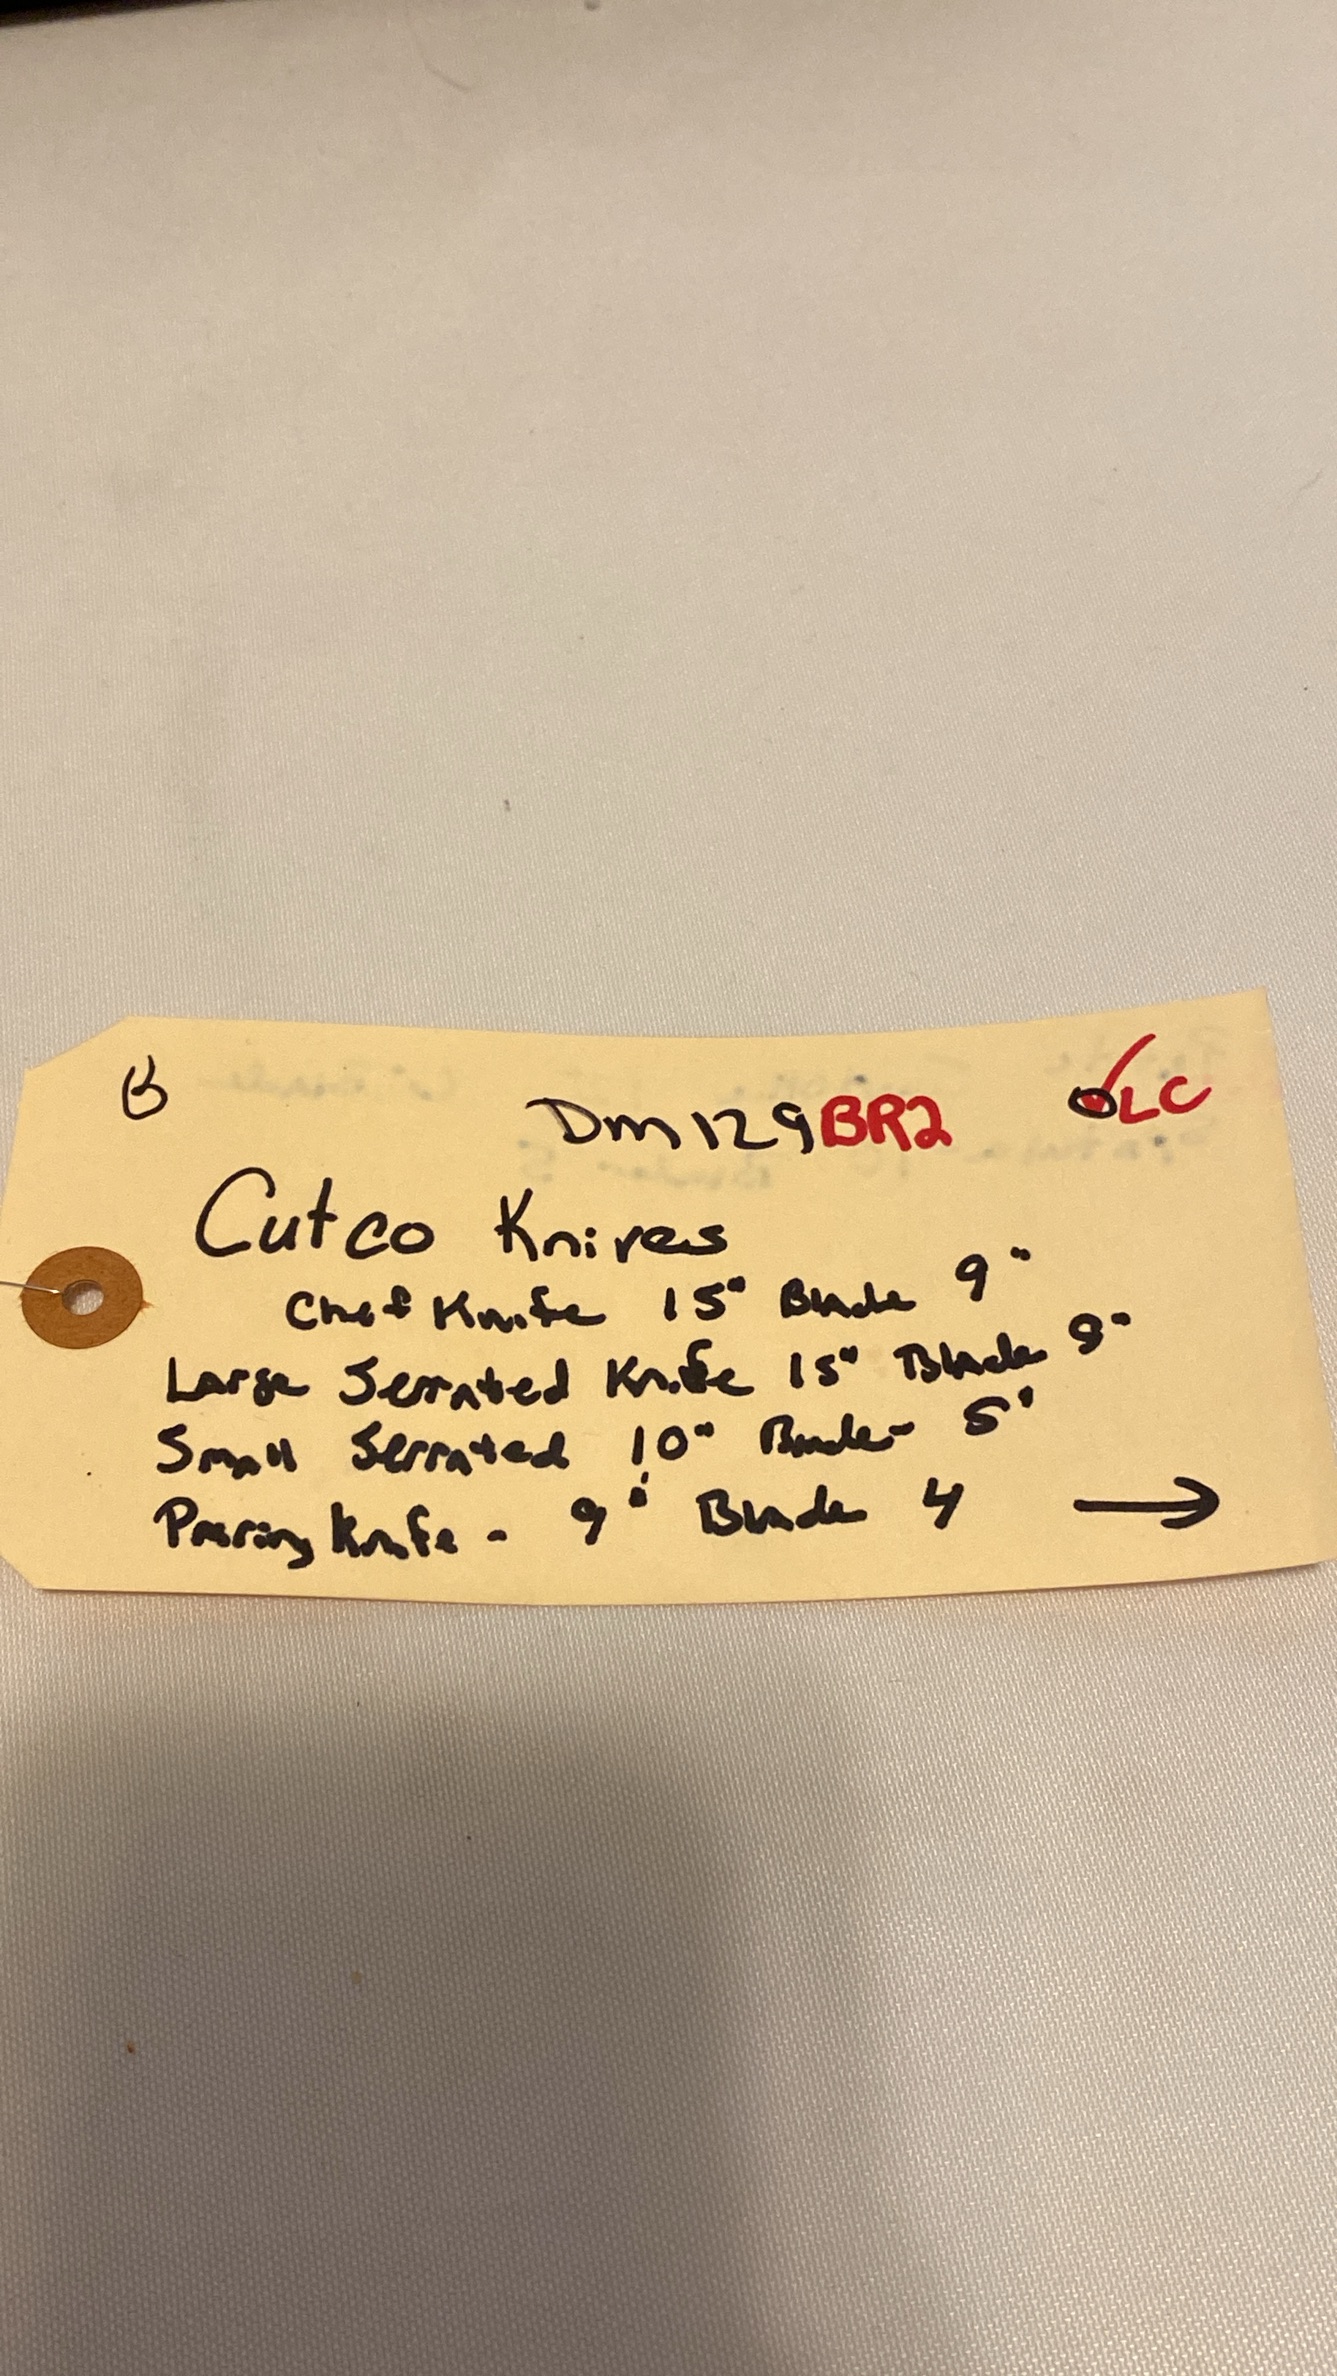 B Dm129BR2 LC
Cutco Knives
Chef Knife 15" Blade 9"
Large Serrated Knife 15" Blade 9"
Small Serrated 10" Blade- 5'
Praring Knife - 9" Blade 4 →